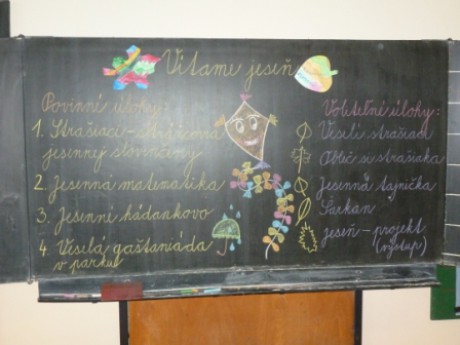 Vítame jeseň
Povinné úlohy:
1. Strašiaci - 
jesennej slovenčiny
2. Jesenná matematika
3. Jesenné hádankovo
4. Veselá gaštaniáda
v parku
Voliteľné úlohy:
Veselí strašiaci
Obleč si strašiaka
Jesenná tajnička
Šarkan
jeseň - projekt
(výstup)